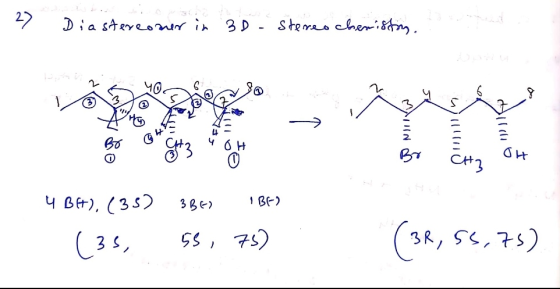 2) Diastereomer in 3D - stereochemistry.
1 2 3 4 5 6 7 8
③ ② ① ② ② ③
H ④ H ④ H 4
Br CH3 OH
① ③ ①
→
1 2 3 4 5 6 7 8
Br CH3 OH
4 B(+), (3S) 3B(-) 1B(-)
(3S, 5S, 7S)
(3R, 5S, 7S)